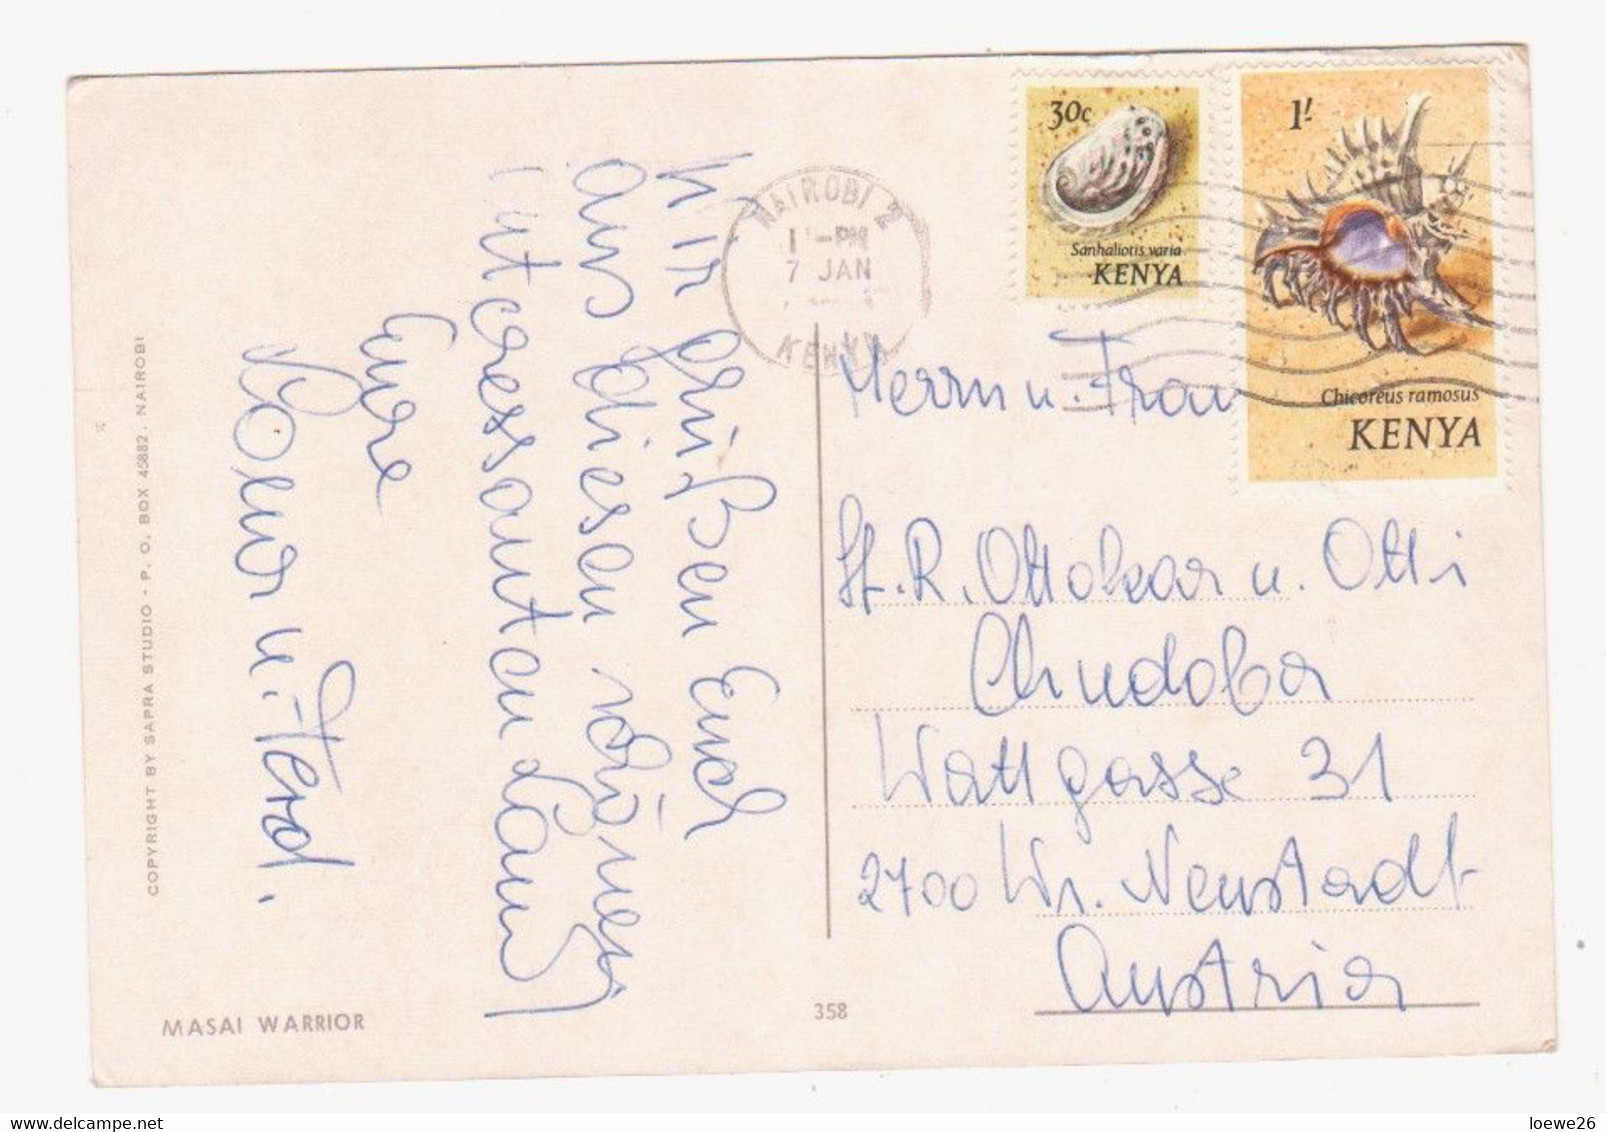 Wir grüßen Euch
aus diesem schönen,
interessanten Land!
Eure
u. Ferd.
COPYRIGHT BY SAPRA STUDIO - P. O. BOX 45882, NAIROBI
MASAI WARRIOR
358
NAIROBI 2
-PM
7 JAN
KENYA
30c
Sanhaliotis varia
KENYA
1/-
Chicoreus ramosus
KENYA
Herrn u. Frau
St.R. Ottokar u. Otti
Chudoba
Wattgasse 31
2700 Wr. Neustadt
Austria
www.delcampe.net
loewe26